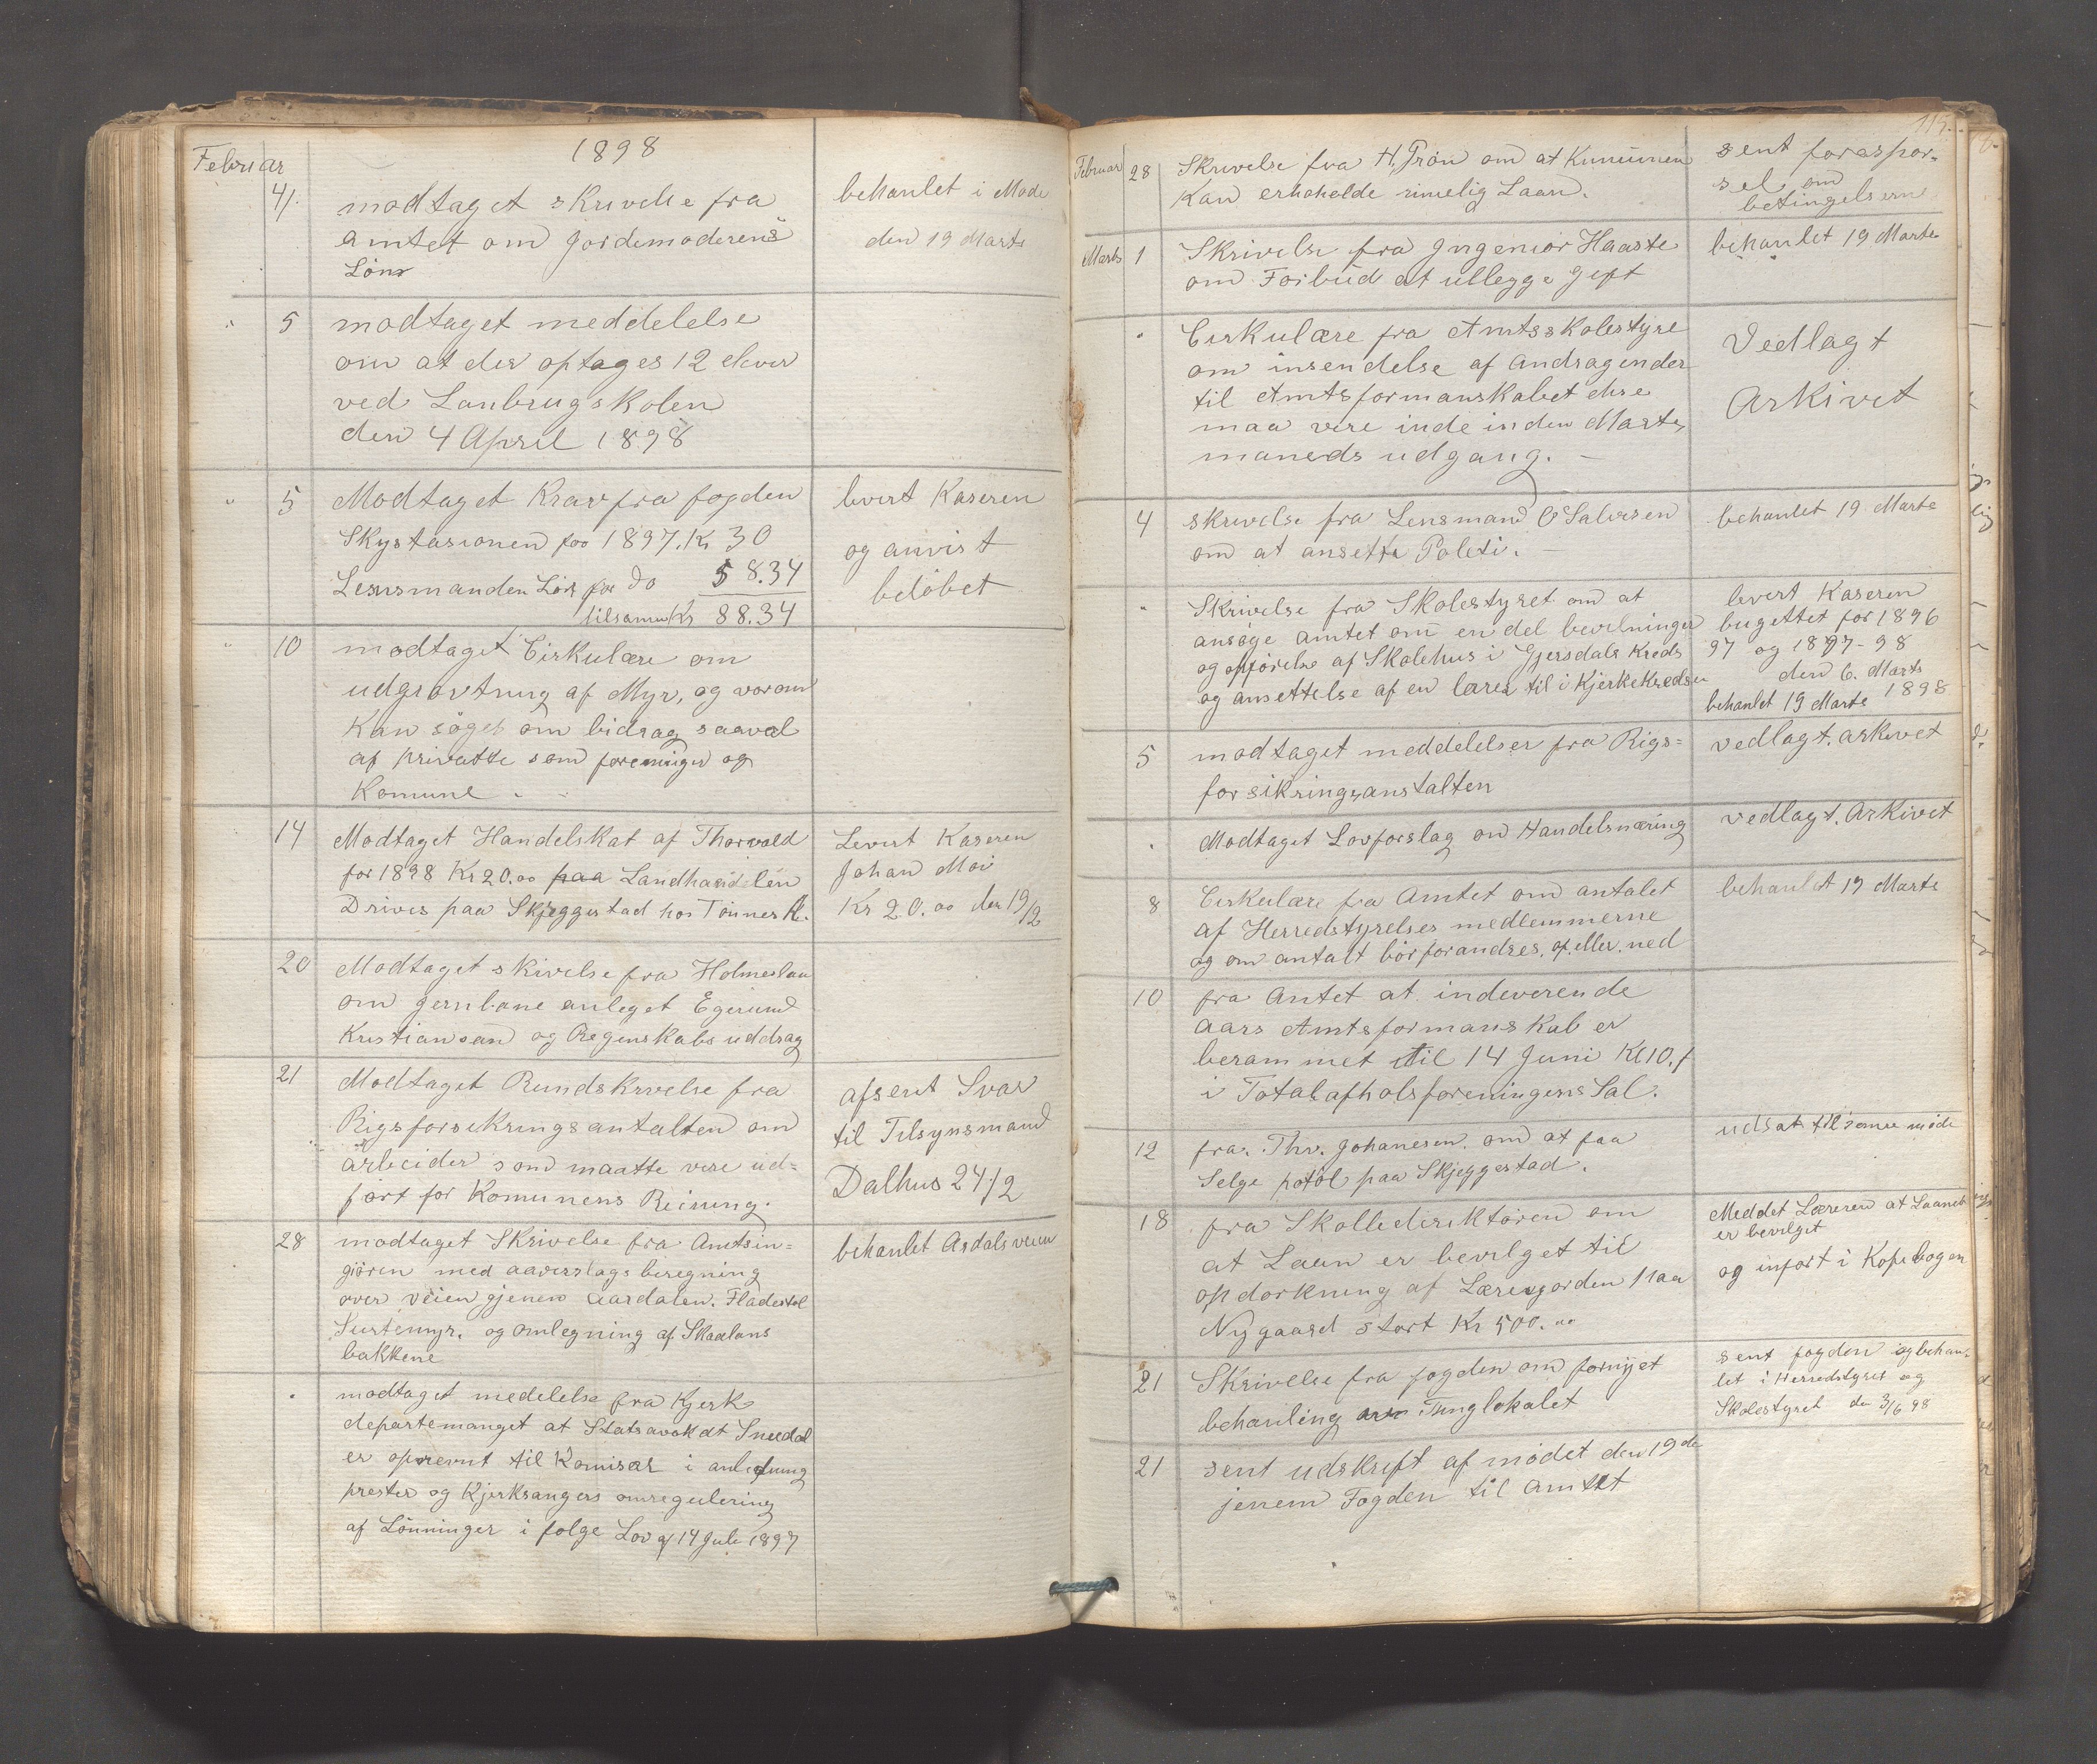 1898
Februar
4/. modtaget skrivelse fra behanlet i Møde
amtet om Jordemoderens den 19 Marts
Løn
" 5 modtaget meddelelse
om at der optages 12 elever
ved Lanbrugskolen
den 4 April 1898
" 5 Modtaget Krav fra fogden levert Kaseren
Skystasionen for 1897. Kr 30 og anvist
Lensmanden Løn for do 58.34 beløbet
tilsamen Kr 88.34
" 10 modtaget Cirkulære om
udgrøvtning af Myr, og vorom
Kan søges om bidrag saavel
af privatte som foreninger og
Komune
14 Modtaget Handelskat af Thorvald Levert Kaseren
for 1898 Kr 20.00 paa Landhandelen Johan Moi
Drives paa Skjeggestad hos Tønnes R. Kr 20.00 den 19/2
20 Modtaget skivelse fra Holmeslau
om gernbane anleget Egersund
Kristiansan og Regenskabs uddrag
21 Modtaget Rundskrvelse fra afsent Svar
Rigsforsikringsantalten om til Tilsynsmand
arbeider som maatte vere ud= Dalhus 24/2
ført for Komunens Reining.
28 modtaget Skrivelse fra Amtsin= behanlet Ardalsveien
giøren med aaverslags beregning
over veien gjenem Aardalen. Fladestøl
Surtemyr. og omlegning af Skaalans
bakkene
" modtaget medelelse fra Kjerk
departemanget at Statsavokdt Smedal
er opnevnt til Komisær i anledning
prester og Kjerksangers omregulering
af Lønninger i følge Lov af 14 Juli 1897
115.
Februar 28 Skrivelse fra H. Trøn om at Kumunen sent forespør-
Kan erhoholde rimelig Laan. sel om
betingelsern
Marts 1 Skrivelse fra Ingeniør Haaste behanlet 19 Marts
om Forbud at ullegge Gift
" Cirkulære fra Amtsskolestyre Vedlagt
om insendelse af Andragender Arkivet
til Amtsformanskabet disse
maa vere inde inden Marts
maneds udgang. -
4 skrivelse fra Lensmand O Salvesen behanlet 19 Marts
om at ansette Politi. -
" Skrivelse fra Skolestyret om at levert Kaseren
ansøge amtet om en del bevilninger bugettet for 1896
og opførelse af Skolehus i Gjersdals Kreds 97 og 1897-98
og ansettelse af en lærer til i Kjerkekredsen den 6. Marts
behanlet 19 Marts 1898
5 modtaget meddelelser fra Rigs= vedlagt. arkivet
forsikringsanstalten
" Modtaget Lovforslag om Handelsnæring vedlagt. Arkivet
8 Cirkulære fra Amtet om antalet behanlet 19 Marts
af Herredstyrelses medlemmerne
og om antalt bør forandres, op. eller. ned
10 fra Amtet at indeverende
aars Amtsformanskab er
berammet til 14 Juni Kl 10. f
i Totalafholsforeningens Sal.
12 fra. Thv. Johanesen. om at faa udsat til samme møde
Selge potøl paa Skjeggestad.
18 fra Skolledirektøren om Meddet Læreren at Laanet
at Laan er bevilget til er bevilget
opdørkning af Læregorden paa og infort i Kopibogen
Nygaard stort Kr 500.00
21 Skrivelse fra fogden om fornyet sent fogden og behan-
behanling Tinglokalet let i Herredstyret og
Skolestyret den 3/6 98
21 sent udskrift af mødet den 19de
jenem Fogden til Amtet